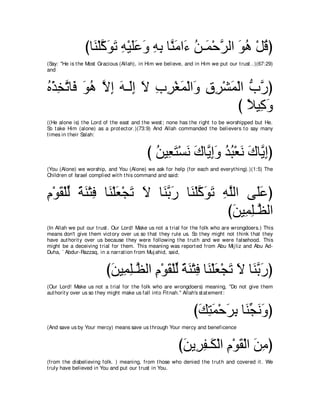 (قُلْ هُوَ الرَّحْمَـنُ ءَامَنَّا بِهِ وَعَلَيْهِ تَوَكَّلْنَا)
(Say: "He is the Most Gracious (Allah), in Him we believe, and in Him we put our trust.)(67:29)
and
(رَّبُّ الْمَشْرِقِ وَالْمَغْرِبِ لاَ إِلَـهَ إِلاَّ هُوَ فَاتَّخِذْهُ
وَكِيلاً )
((He alone is) the Lord of the east and the west; none has the right to be worshipped but He.
So take Him (alone) as a protector.)(73:9) And Allah commanded the believers to say many
times in their Salah:
(إِيَّاكَ نَعْبُدُ وَإِيَّاكَ نَسْتَعِينُ )
(You (Alone) we worship, and You (Alone) we ask for help (for each and everything).)(1:5) The
Children of Israel complied with this command and said:
(عَلَى اللَّهِ تَوَكَّلْنَا رَبَّنَا لاَ تَجْعَلْنَا فِتْنَةً لِّلْقَوْمِ
الظَّـلِمِينَ)
(In Allah we put our trust. Our Lord! Make us not a trial for the folk who are wrongdoers.) This
means don't give them victory over us so that they rule us. So they might not think that they
have authority over us because they were following the truth and we were falsehood. This
might be a deceiving trial for them. This meaning was reported from Abu Mijliz and Abu Ad-
Duha, `Abdur-Razzaq, in a narration from Mujahid, said,
(رَبَّنَا لاَ تَجْعَلْنَا فِتْنَةً لِّلْقَوْمِ الظَّـلِمِينَ)
(Our Lord! Make us not a trial for the folk who are wrongdoers) meaning, "Do not give them
authority over us so they might make us fall into Fitnah." Allah's statement:
(وَنَجِّنَا بِرَحْمَتِكَ)
(And save us by Your mercy) means save us through Your mercy and beneficence
(مِنَ الْقَوْمِ الْكَـفِرِينَ)
(from the disbelieving folk. ) meaning, from those who denied the truth and covered it. We
truly have believed in You and put our trust in You.